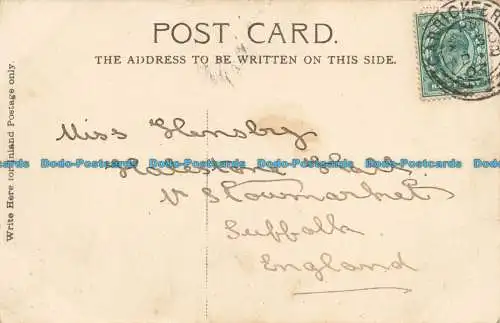 POST CARD.
THE ADDRESS TO BE WRITTEN ON THIS SIDE.
Write Here for Inland Postage only.
Miss
Dodo-Postcards Dodo-Postcards Dodo-Postcards Dodo-Postcards Dodo-Postcards
Nr Stowmarket
Suffolk
England